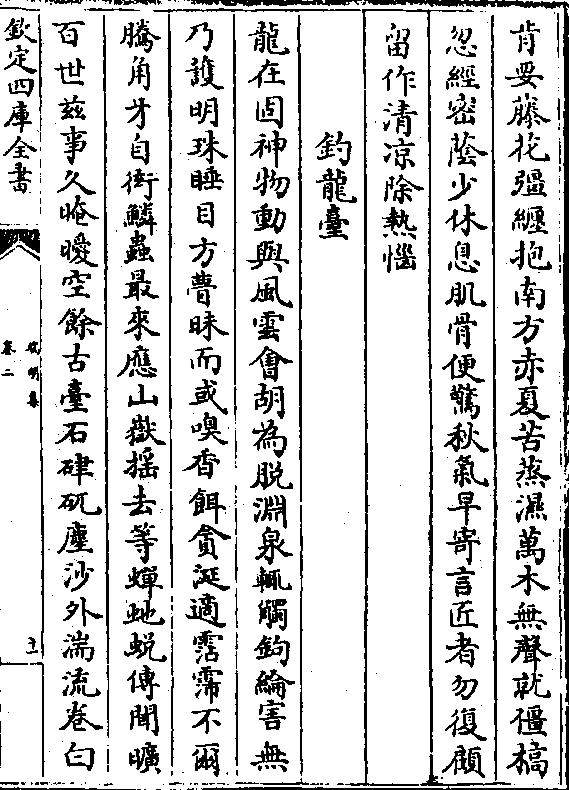 肯要藤花彊纒抱南方赤夏苦蒸濕萬木無聲就僵槁
忽經宻蔭少休息肌骨便驚秋氣早寄言匠者勿復顧
留作清凉除熱惱
釣龍臺
龍在固神物動與風雲會胡為脱淵泉輒觸鉤綸害無
乃䕶明珠睡目方瞢昧而或嗅香餌貪涎適霑霈不爾
騰角牙自衒鱗蟲最來應山嶽揺去等蟬虵蜕傳聞曠
百世兹事久晻曖空餘古臺石硉矹塵沙外湍流卷白
欽定四庫全書
卷二